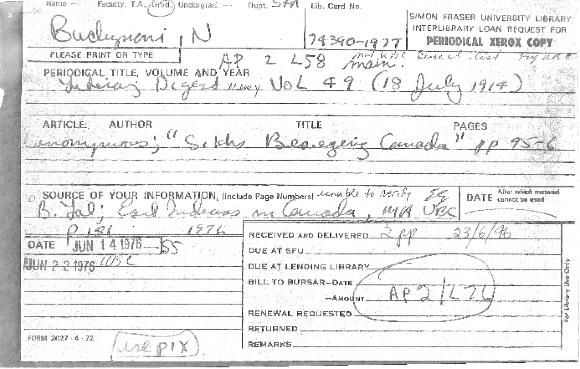 Name — Faculty, T.A., Grad, Undergrad. — Dept. Lib. Card No.
SIMON FRASER UNIVERSITY LIBRARY
INTERLIBRARY LOAN REQUEST FOR
PERIODICAL XEROX COPY
N 74390-1977
PLEASE PRINT OR TYPE
AP 2 L58 main.
PERIODICAL TITLE, VOLUME AND YEAR
Literary Digest Vol 49 (18 July 1914)
ARTICLE: AUTHOR TITLE PAGES
anonymous; "Sikhs Besieging Canada" pp 95-6
SOURCE OF YOUR INFORMATION, (Include Page Numbers) unable to verify
DATE After which material cannot be used
B. Lal; East Indians in Canada, MA UBC
1976
DATE JUN 14 1976
JUN 22 1976 UBC
RECEIVED AND DELIVERED 2 pp 23/6/76
DUE AT SFU
DUE AT LENDING LIBRARY
BILL TO BURSAR—DATE
—AMOUNT AP2/L76
RENEWAL REQUESTED
RETURNED
REMARKS
For Library Use Only
FORM 2027-4-72
use pix